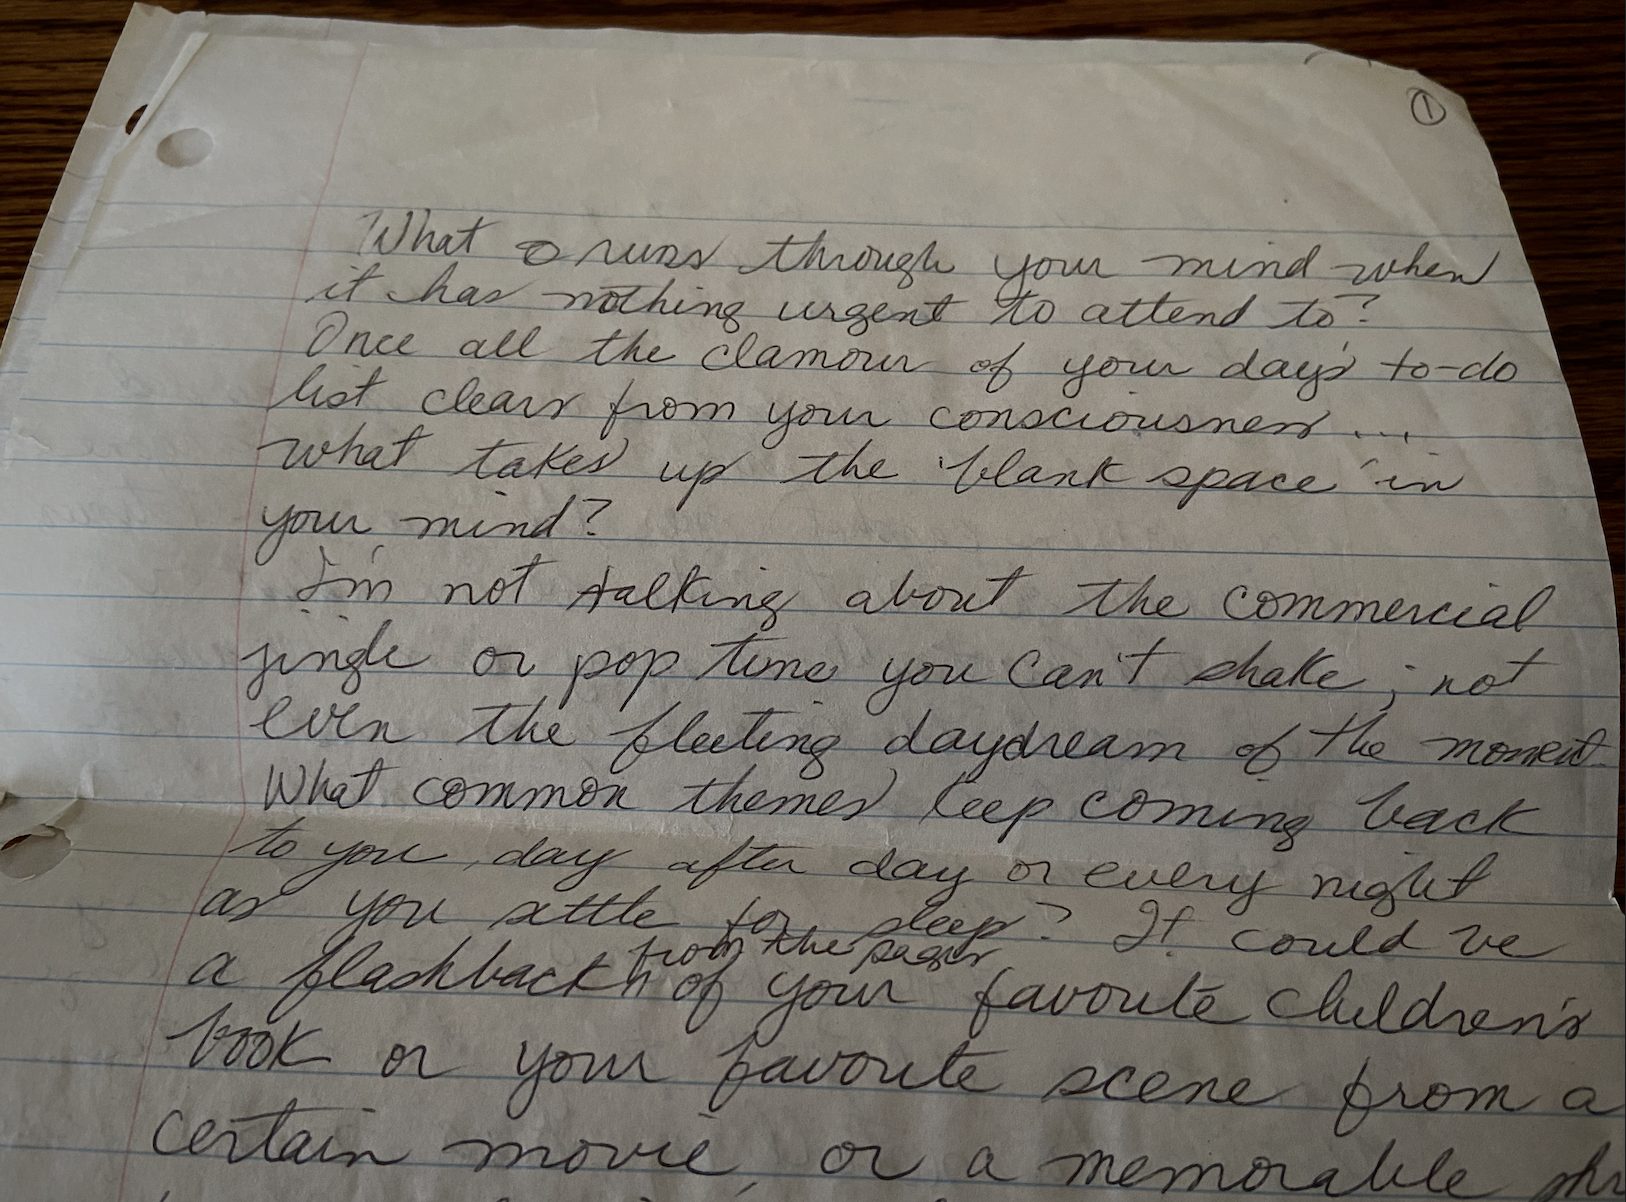 ①
What runs through your mind when
it has nothing urgent to attend to?
Once all the clamour of your day's to-do
list clears from your consciousness ...
what takes up the 'blank space' in
your mind?
I'm not talking about the commercial
jingle or pop tune you can't shake; not
even the fleeting daydream of the moment.
What common themes keep coming back
to you, day after day or every night
as you settle for sleep? It could be
from the pages
a flashback of your favorite children's
book or your favorite scene from a
certain movie, or a memorable